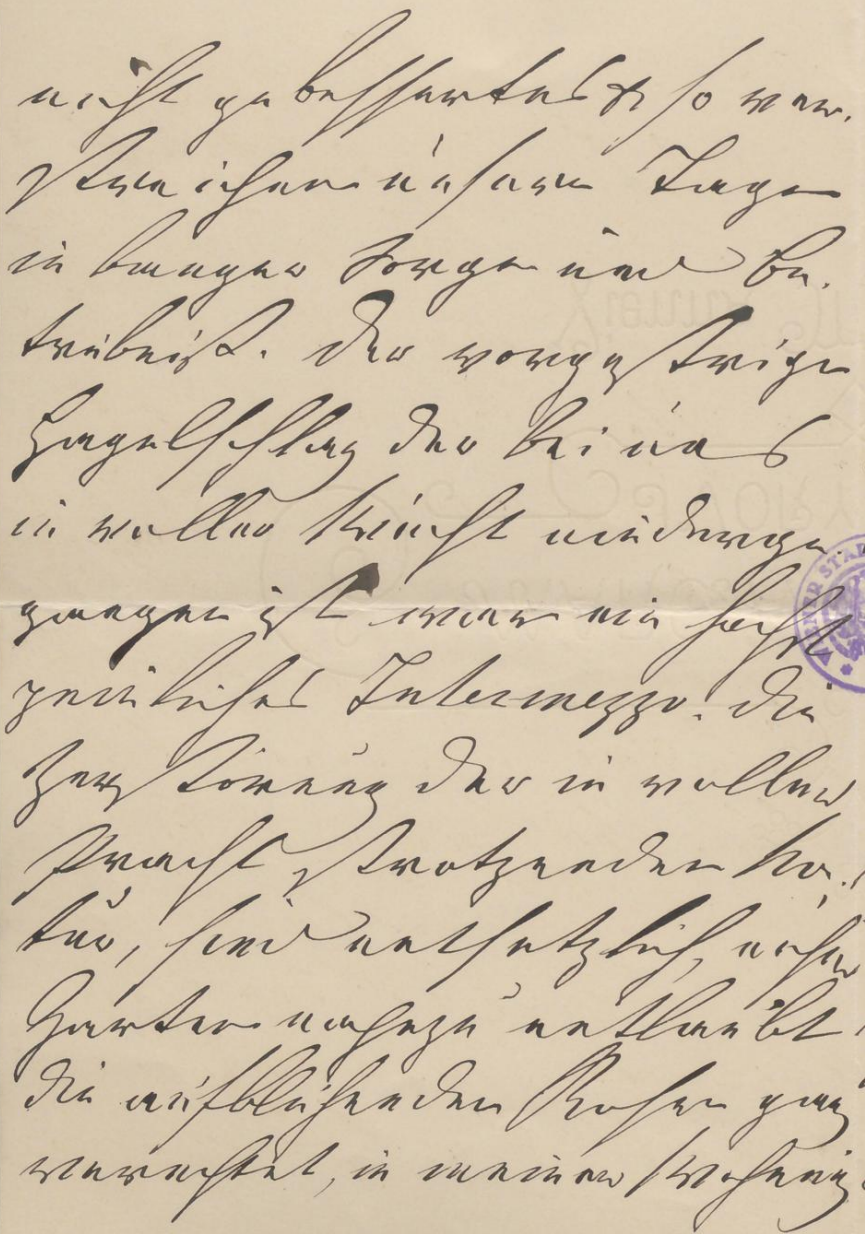 nicht gebessertes & so ver-
streichen unsere Tage
in banger Sorge und Be-
trübniß. Der vorgestrige
Hagelschlag der bei uns
in voller Wucht niederge-
gangen ist war ein höchst
peinliches Intermezzo. Die
Zerstörung der in vollen
Pracht strotzenden Na-
tur, sind entsetzlich, unser
Garten nahezu entlaubt
die aufblühenden Rosen ganz
vernichtet, in meiner Wohnung
WIENER STA